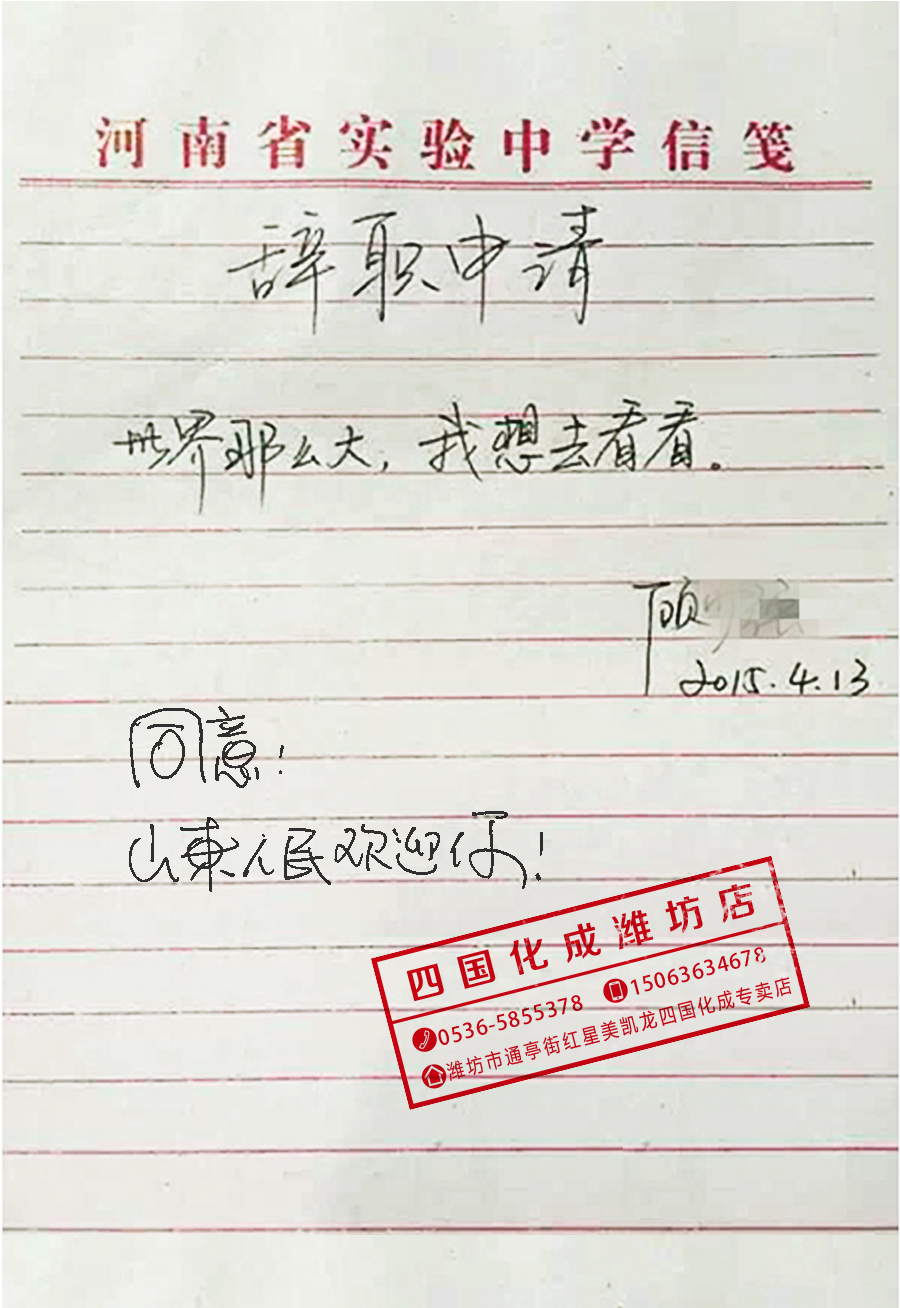 河南省实验中学信笺
辞职申请
世界那么大，我想去看看。
顾
2015.4.13
同意！
山東人民欢迎你！
四国化成潍坊店
0536-5855378 15063634678
潍坊市通亭街红星美凯龙四国化成专卖店